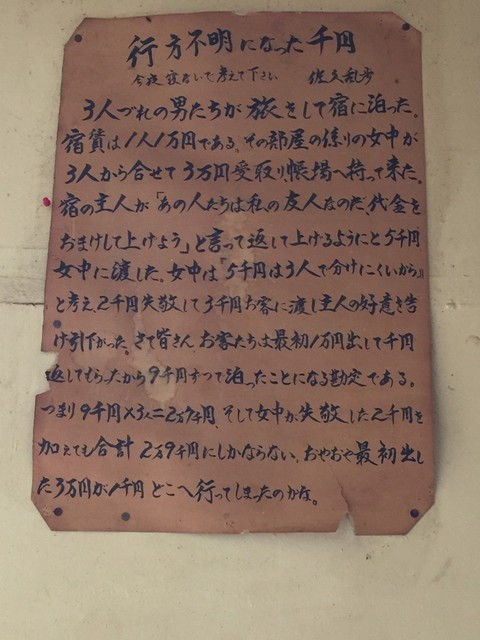 行方不明になった千円
今夜寝ないで考えて下さい 佐久乱歩
3人づれの男たちが旅をして宿に泊った。
宿賃は1人1万円である。その部屋の係りの女中が
3人から合せて3万円受取り、帳場へ持って来た。
宿の主人が「あの人たちは私の友人なのだ、代金を
おまけして上げよう」と言って返して上げるようにと5千円
女中に渡した。女中は「5千円は3人で分けにくいから」
と考え、2千円失敬して3千円お客に渡し主人の好意を告
げ引下がった。さて皆さん、お客たちは最初1万円出して千円
返してもらったから9千円ずつで泊ったことになる勘定である。
つまり9千円×3人=2万7千円、そして女中が失敬した2千円を
加えても合計2万9千円にしかならない。おやおや最初出し
た3万円が1千円どこへ行ってしまったのかな。